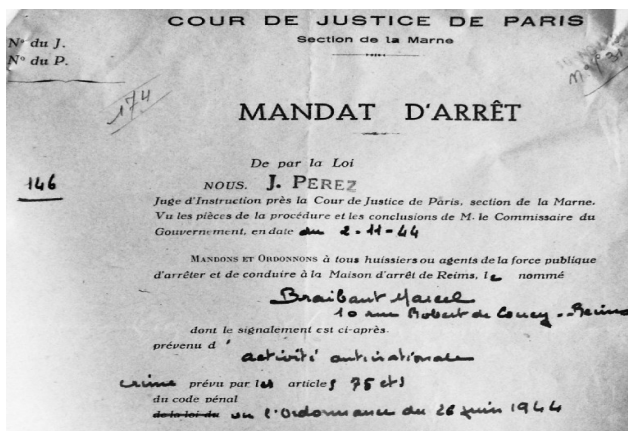 COUR DE JUSTICE DE PARIS
Section de la Marne
N° du J.
N° du P.
174
MANDAT D'ARRÊT
De par la Loi
146
NOUS. J. PEREZ
Juge d'Instruction près la Cour de Justice de Paris, section de la Marne.
Vu les pièces de la procédure et les conclusions de M. le Commissaire du
Gouvernement, en date du 2-11-44
MANDONS ET ORDONNONS à tous huissiers ou agents de la force publique
d'arrêter et de conduire à la Maison d'arrêt de Reims, le nommé
Braibant Marcel
10 rue Robert de Coucy - Reims
dont le signalement est ci-après.
prévenu d'
activité antinationale
crime prévu par les articles 75 et s
du code pénal
de la loi du vu l'Ordonnance du 26 juin 1944